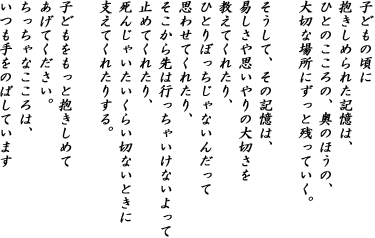 子どもの頃に
抱きしめられた記憶は、
ひとのこころの、奥のほうの、
大切な場所にずっと残っていく。
そうして、その記憶は、
易しさや思いやりの大切さを
教えてくれたり、
ひとりぼっちじゃないんだって
思わせてくれたり、
そこから先は行っちゃいけないよって
止めてくれたり、
死んじゃいたいくらい切ないときに
支えてくれたりする。
子どもをもっと抱きしめて
あげてください。
ちっちゃなこころは、
いつも手をのばしています